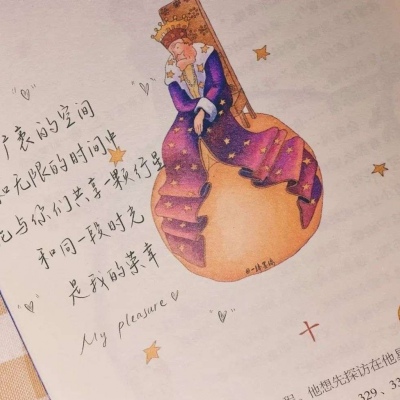 广袤的空间
和无限的时间中
能与你们共享一颗行星
和同一段时光
是我的荣幸
My pleasure
他想先探访在他星
329、33